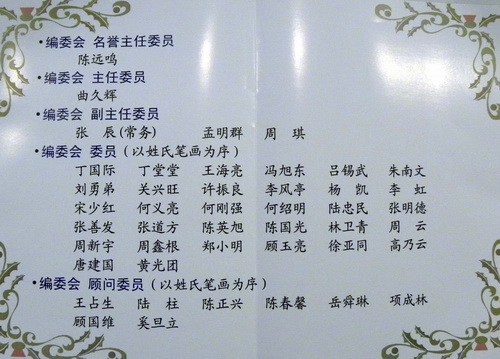 •编委会 名誉主任委员
陈远鸣
•编委会 主任委员
曲久辉
•编委会 副主任委员
张 辰(常务) 孟明群 周 琪
•编委会 委员(以姓氏笔画为序)
丁国际 丁堂堂 王海亮 冯旭东 吕锡武 朱南文
刘勇弟 关兴旺 许振良 李风亭 杨 凯 李 虹
宋少红 何义亮 何刚强 何绍明 陆忠民 张明德
张善发 张道方 陈英旭 陈国光 林卫青 周 云
周新宇 周鑫根 郑小明 顾玉亮 徐亚同 高乃云
唐建国 黄光团
•编委会 顾问委员(以姓氏笔画为序)
王占生 陆 柱 陈正兴 陈春馨 岳舜琳 项成林
顾国维 奚旦立